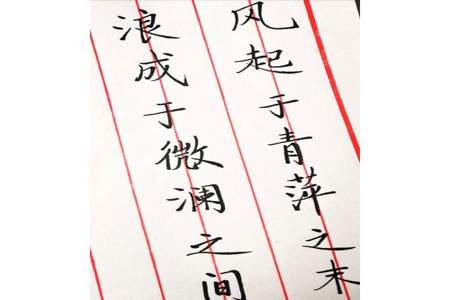 风起于青萍之末
浪成于微澜之间